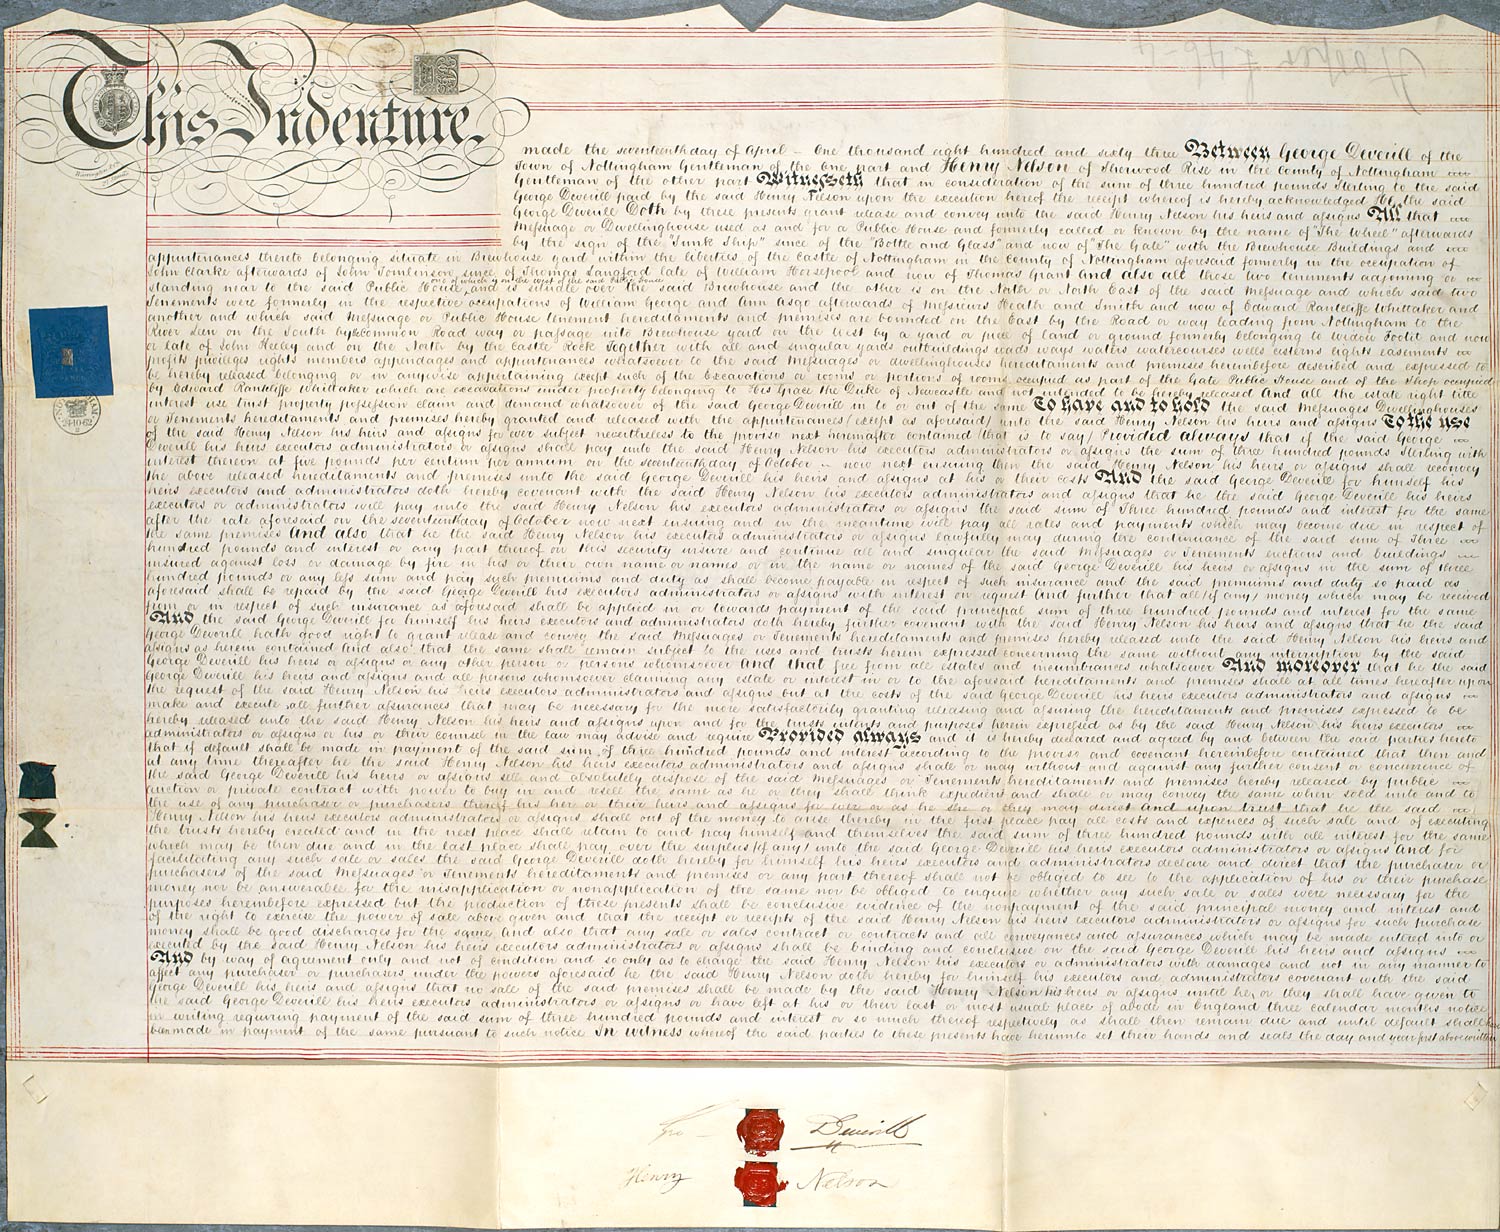 This Indenture
made the seventeenth day of April — One thousand eight hundred and sixty three Between George Deverill of the
Town of Nottingham Gentleman of the One part and Henry Nelson of Sherwood Rise in the County of Nottingham
Gentleman of the other part Witnesseth that in consideration of the sum of three hundred pounds Sterling to the said
George Deverill paid by the said Henry Nelson upon the execution hereof the receipt whereof is hereby acknowledged He the said
George Deverill Doth by these presents grant release and convey unto the said Henry Nelson his heirs and assigns All that
Messuage or Dwellinghouse used as and for a Public House and formerly called or known by the name of "The Wheel" afterwards
by the sign of the "Sunk Ship" since of the "Bottle and Glass" and now of "The Gate" with the Brewhouse Buildings and
appurtenances thereto belonging situate in Brewhouse yard within the liberties of the Castle of Nottingham in the County of Nottingham aforesaid formerly in the occupation of
John Clarke afterwards of John Tomlinson since of Thomas Langford late of William Horsepool and now of Thomas Grant And also all those two tenements adjoining or
one of which is on the West of the said Public House
standing near to the said Public House and is situate over the said Brewhouse and the other is on the North or North East of the said Messuage and which said two
Tenements were formerly in the respective occupations of William George and Ann Asgo afterwards of Messieurs Heath and Smith and now of Edward Rantcliffe Whittaker and
another and which said Messuage or Public House tenement hereditaments and premises are bounded on the East by the Road or way leading from Nottingham to the
River Leen on the South by a common Road way or passage into Brewhouse yard on the West by a yard or piece of land or ground formerly belonging to Widow Footit and now
or late of John Heeley and on the North by the Castle Rock Together with all and singular yards outbuildings roads ways waters watercourses wells cisterns lights easements
profits privileges rights members appendages and appurtenances whatsoever to the said Messuages or dwellinghouses hereditaments and premises hereinbefore described and expressed to
be hereby released belonging or in anywise appertaining except such of the Excavations or rooms or portions of rooms occupied as part of the Gate Public House and of the Shop occupied
by Edward Rantcliffe Whittaker which are excavations under property belonging to His Grace the Duke of Newcastle and not intended to be hereby released And all the estate right title
interest use trust property possession claim and demand whatsoever of the said George Deverill in to or out of the same To have and to hold the said Messuages Dwellinghouses
or Tenements hereditaments and premises hereby granted and released with the appurtenances (except as aforesaid) unto the said Henry Nelson his heirs and assigns To the use
of the said Henry Nelson his heirs and assigns for ever subject nevertheless to the proviso next hereinafter contained (that is to say) Provided always that if the said George
Deverill his heirs executors administrators or assigns shall pay unto the said Henry Nelson his executors administrators or assigns the sum of three hundred pounds Sterling with
interest thereon at five pounds per centum per annum on the seventeenth day of October now next ensuing then the said Henry Nelson his heirs or assigns shall reconvey
the above released hereditaments and premises unto the said George Deverill his heirs and assigns at his or their costs And the said George Deverill for himself his
heirs executors and administrators doth hereby covenant with the said Henry Nelson his executors administrators and assigns that he the said George Deverill his heirs
executors or administrators will pay unto the said Henry Nelson his executors administrators or assigns the said sum of Three hundred pounds and interest for the same
after the rate aforesaid on the seventeenth day of October now next ensuing and in the meantime will pay all rates and payments which may become due in respect of
the same premises And also that he the said Henry Nelson his executors administrators or assigns lawfully may during the continuance of the said sum of Three
hundred pounds and interest or any part thereof on this security insure and continue all and singular the said Messuages or Tenements erections and buildings
insured against loss or damage by fire in his or their own name or names or in the name or names of the said George Deverill his heirs or assigns in the sum of three
hundred pounds or any less sum and pay such premiums and duty as shall become payable in respect of such insurance and the said premiums and duty so paid as
aforesaid shall be repaid by the said George Deverill his executors administrators or assigns with interest on request And further that all (if any) money which may be received
from or in respect of such insurance as aforesaid shall be applied in or towards payment of the said principal sum of three hundred pounds and interest for the same
And the said George Deverill for himself his heirs executors and administrators doth hereby further covenant with the said Henry Nelson his heirs and assigns that he the said
George Deverill hath good right to grant release and convey the said Messuages or Tenements hereditaments and premises hereby released unto the said Henry Nelson his heirs and
assigns as herein contained And also that the same shall remain subject to the uses and trusts herein expressed concerning the same without any interruption by the said
George Deverill his heirs or assigns or any other person or persons whomsoever And that free from all estates and incumbrances whatsoever And moreover that he the said
George Deverill his heirs and assigns and all persons whomsoever claiming any estate or interest in or to the aforesaid hereditaments and premises shall at all times hereafter upon
the request of the said Henry Nelson his heirs executors administrators and assigns but at the costs of the said George Deverill his heirs executors administrators and assigns
make and execute all further assurances that may be necessary for the more satisfactorily granting releasing and assuring the hereditaments and premises expressed to be
hereby released unto the said Henry Nelson his heirs and assigns upon and for the trusts intents and purposes herein expressed as by the said Henry Nelson his heirs executors
administrators or assigns or his or their counsel in the law may advise and require Provided always and it is hereby declared and agreed by and between the said parties hereto
that if default shall be made in payment of the said sum of three hundred pounds and interest according to the proviso and covenant hereinbefore contained that then and
at any time thereafter he the said Henry Nelson his heirs executors administrators and assigns shall or may without and against any further consent or concurrence of
the said George Deverill his heirs or assigns sell and absolutely dispose of the said Messuages or Tenements hereditaments and premises hereby released by public
auction or private contract with power to buy in and resell the same as he or they shall think expedient and shall or may convey the same when sold unto and to
the use of any purchaser or purchasers thereof his her or their heirs and assigns for ever or as he she or they may direct And upon trust that he the said
Henry Nelson his heirs executors administrators or assigns shall out of the money to arise thereby in the first place pay all costs and expences of such sale and of executing
the trusts hereby created and in the next place shall retain to and pay himself and themselves the said sum of three hundred pounds with all interest for the same
which may be then due and in the last place shall pay over the surplus (if any) unto the said George Deverill his heirs executors administrators or assigns And for
facilitating any such sale or sales the said George Deverill doth hereby for himself his heirs executors and administrators declare and direct that the purchaser or
purchasers of the said Messuages or Tenements hereditaments and premises or any part thereof shall not be obliged to see to the application of his or their purchase
money nor be answerable for the misapplication or nonapplication of the same nor be obliged to enquire whether any such sale or sales were necessary for the
purposes hereinbefore expressed but the production of these presents shall be conclusive evidence of the nonpayment of the said principal money and interest and
of the right to exercise the power of sale above given and that the receipt or receipts of the said Henry Nelson his heirs executors administrators or assigns for such purchase
money shall be good discharges for the same And also that any sale or sales contract or contracts and all conveyances and assurances which may be made entered into or
executed by the said Henry Nelson his heirs executors administrators or assigns shall be binding and conclusive on the said George Deverill his heirs and assigns
And by way of agreement only and not of condition and so only as to charge the said Henry Nelson his executors or administrators with damages and not in any manner to
affect any purchaser or purchasers under the powers aforesaid he the said Henry Nelson doth hereby for himself his executors and administrators covenant with the said
George Deverill his heirs and assigns that no sale of the said premises shall be made by the said Henry Nelson his heirs or assigns until he or they shall have given to
the said George Deverill his heirs executors administrators or assigns or have left at his or their last or most usual place of abode in England three calendar months notice
in writing requiring payment of the said sum of three hundred pounds and interest or so much thereof respectively as shall then remain due and until default shall have
been made in payment of the same pursuant to such notice In witness whereof the said parties to these presents have hereunto set their hands and seals the day and year first above written
NOTTINGHAM
24·10·62
Geo Deverill
Henry Nelson